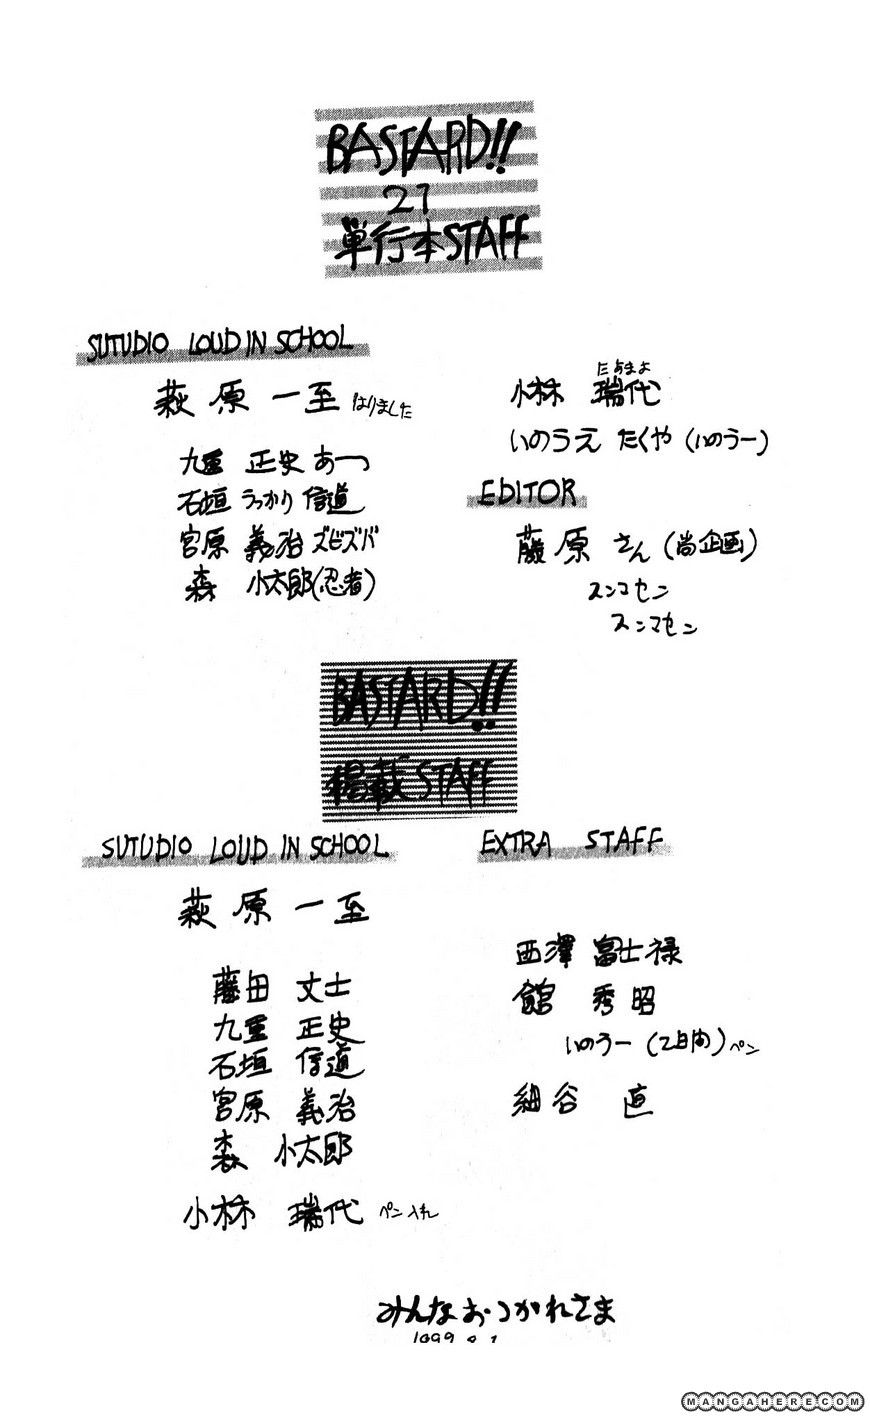 BASTARD!!
21
単行本STAFF
SUTUDIO LOUD IN SCHOOL
萩原 一至 はりました
九重 正史 あーっ
石垣 うっかり 信道
宮原 義治 ズビズバ
森 小太郎(忍者)
たまよ
小林 瑞代
いのうえ たくや (いのうー)
EDITOR
藤原 さん (尚企画)
スンマセン
スンマセン
BASTARD!!
掲載STAFF
SUTUDIO LOUD IN SCHOOL
萩原 一至
藤田 丈士
九重 正史
石垣 信道
宮原 義治
森 小太郎
小林 瑞代 ペン入れ
EXTRA STAFF
西澤 富士禄
館 秀昭
いのうー (2日間) ペン
細谷 直
みんなおつかれさま
MANGAHERE.COM